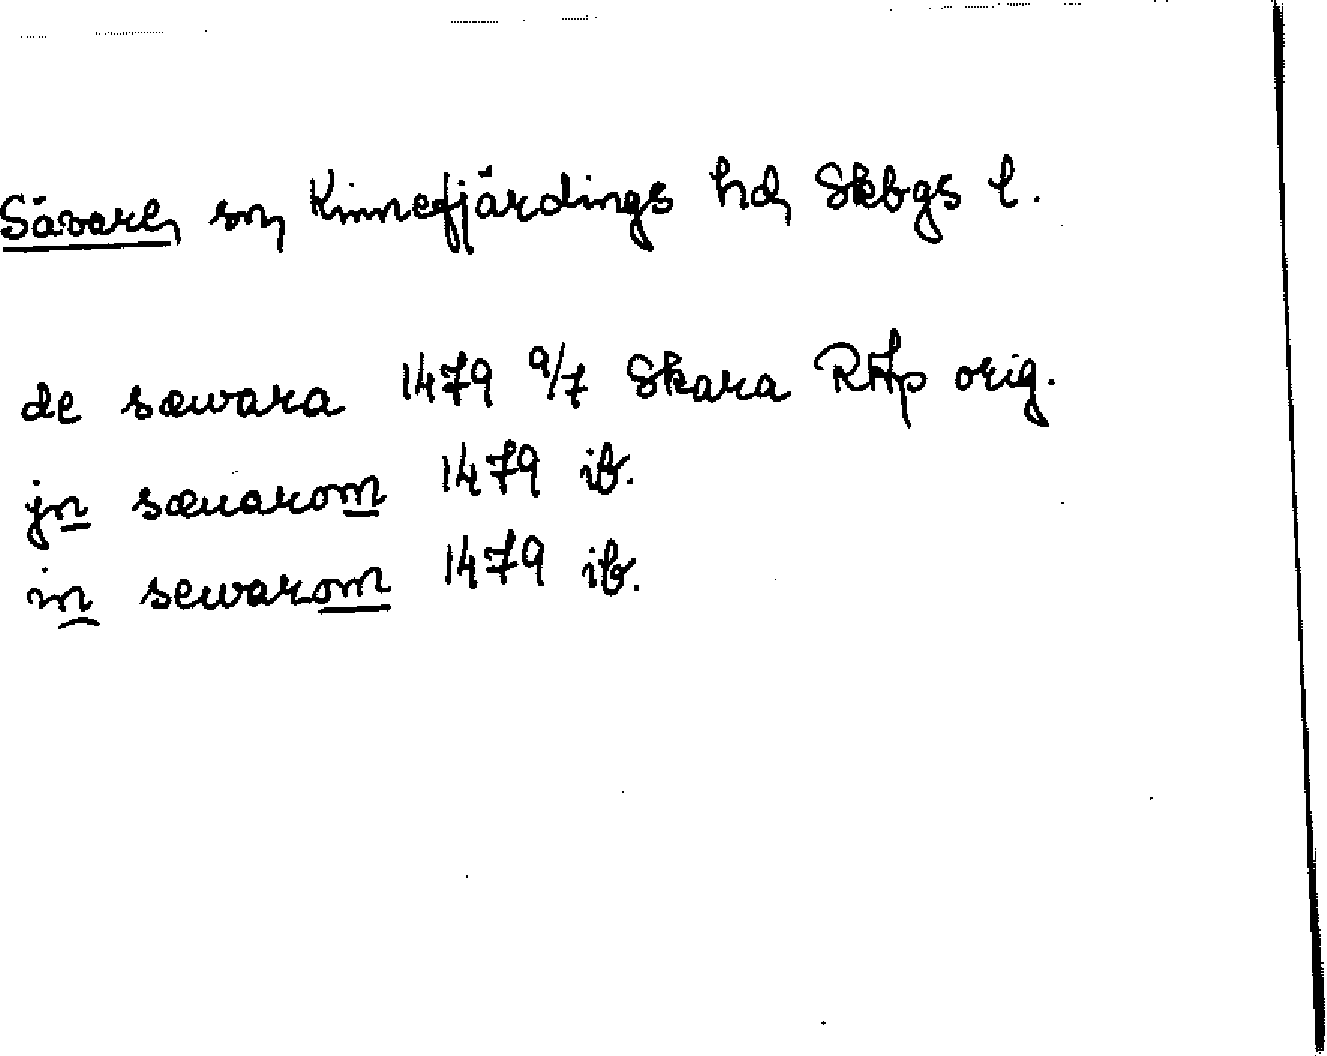 Sävare, sn, Kinnefjärdings hd, Skbgs l.
de sæwara 1479 9/7 Skara RAp orig.
jn sæuarom 1479 ib.
in sewarom 1479 ib.